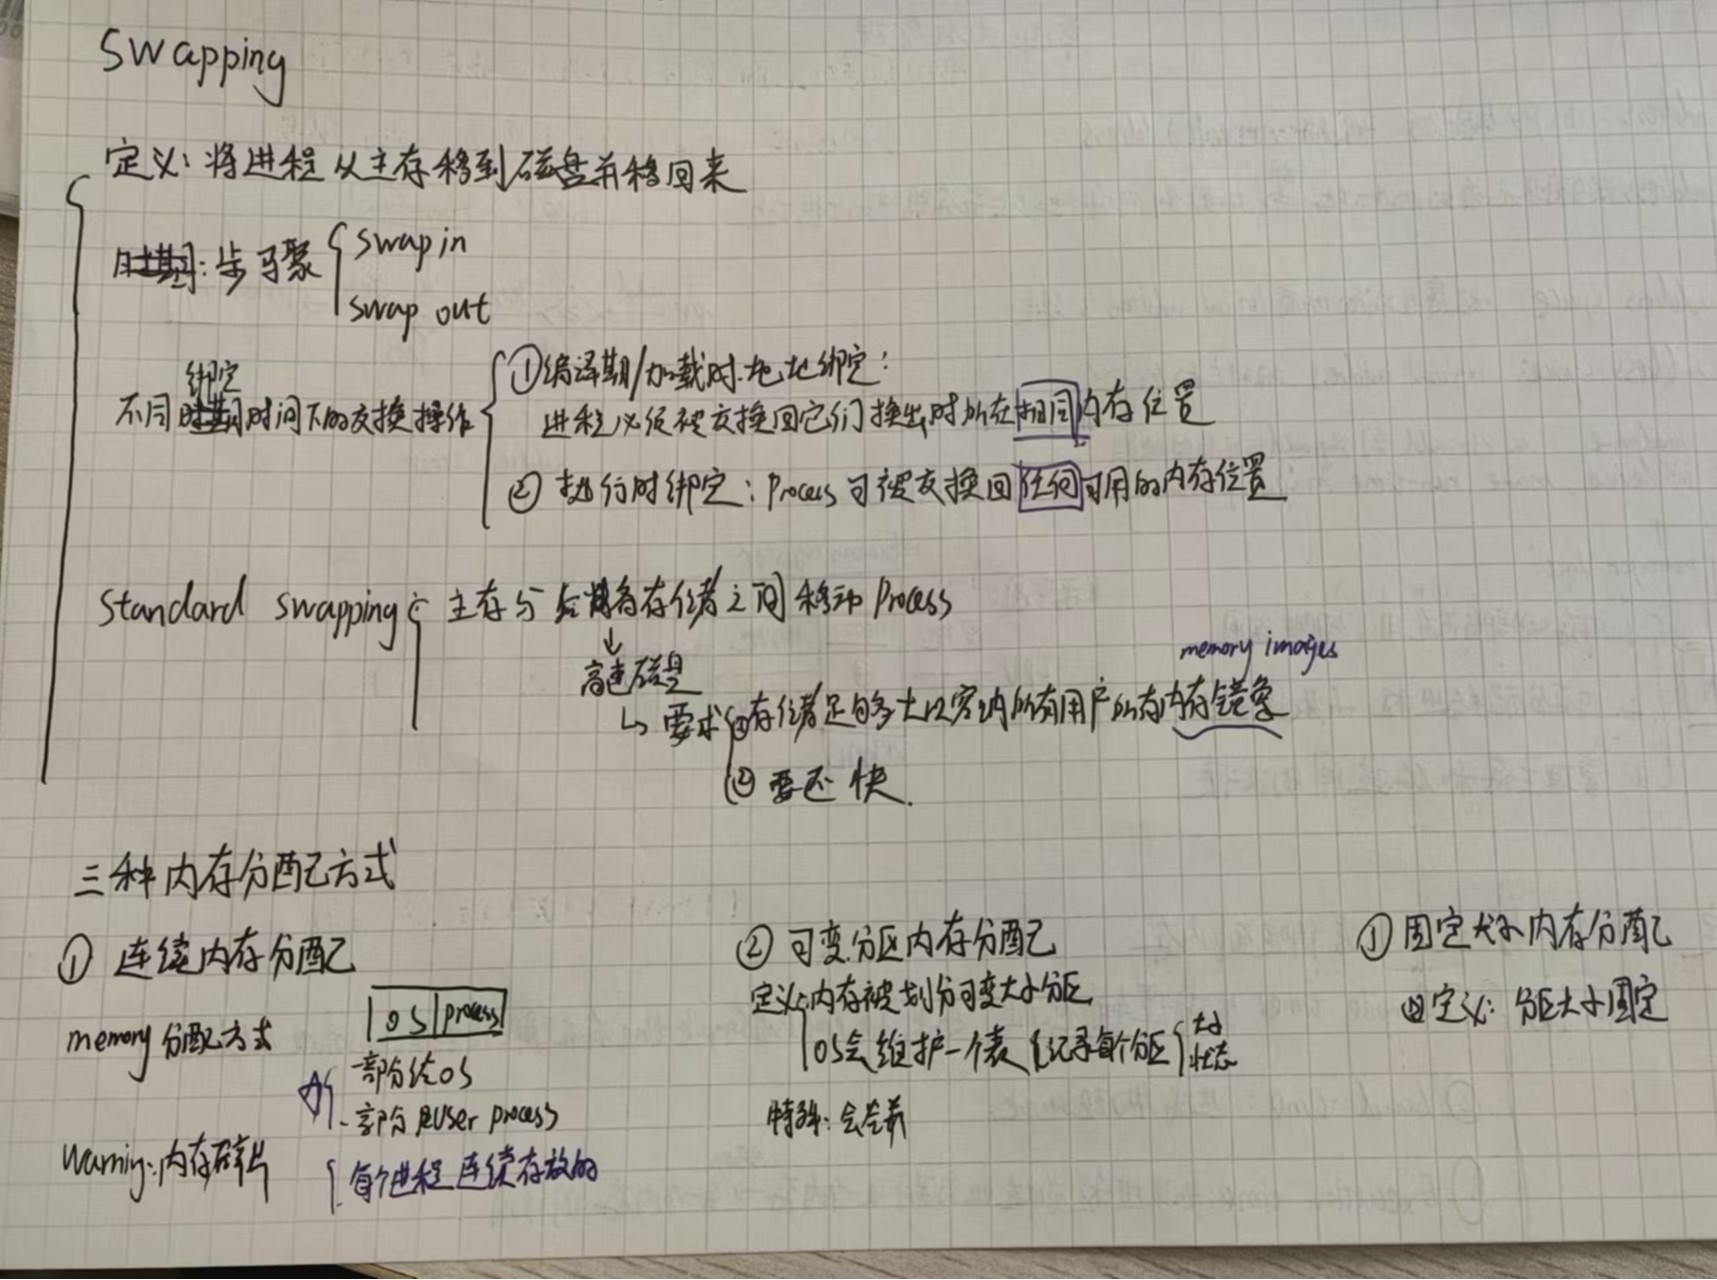 Swapping
定义：将进程从主存移到磁盘并移回来
步骤 swap in
swap out
绑定
不同时间下的交换操作
①编译期/加载时地址绑定：
进程必须被交换回它们换出时所在相同内存位置
② 执行时绑定：Process 可被交换回任何可用的内存位置
Standard swapping： 主存与后备存储之间移动 Process
↓
高速磁盘
memory images
↳ 要求 ①存储足够大以容纳所有用户所有内存镜像
② 要还快.
三种内存分配方式
① 连续内存分配
OS process
memory 分配方式
一部分给OS
一部分user process
每个进程连续存放的
warning：内存碎片
② 可变分区内存分配
定义：内存被划分可变大小分区
OS会维护一个表 记录每个分区 大小
状态
特殊：会合并
固定大小内存分配
定义：分区大小固定